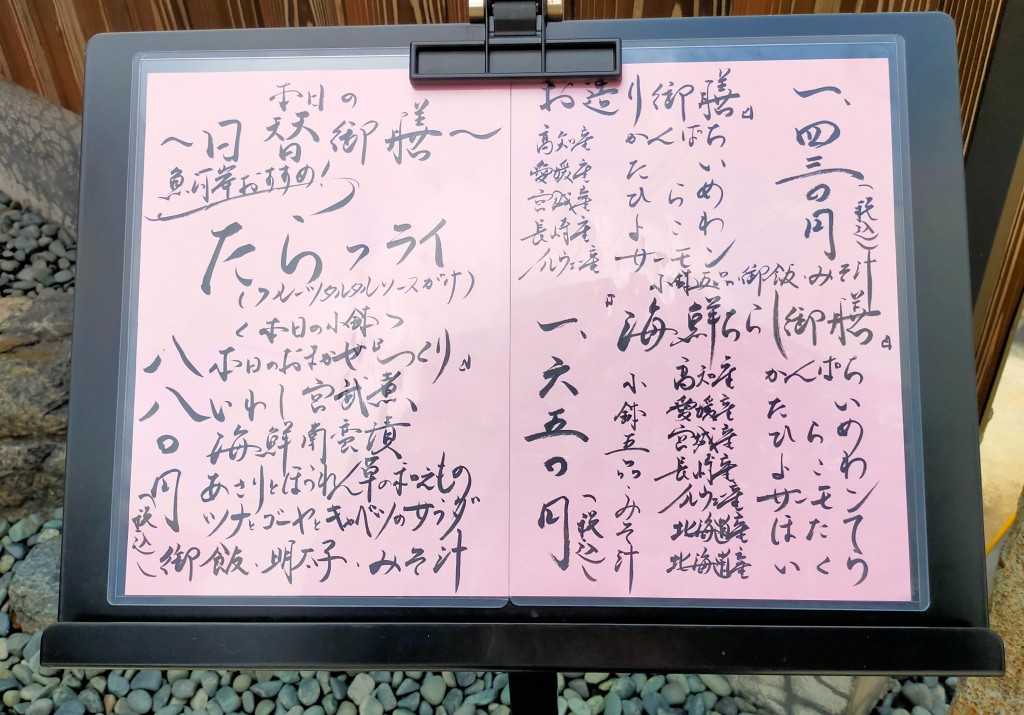 本日の
〜日替御膳〜
魚河岸おすすめ！
たらフライ
（フルーツタルタルソースがけ）
〈本日の小鉢〉
本日のおまかせ『つくり』
いわし宮武煮、
海鮮南蛮漬
あさりとほうれん草の和えもの
ツナとゴーヤとキャベツのサラダ
御飯・明太子・みそ汁
八八〇円
（税込）
お造り御膳』
高知産 かんぱち
愛媛産 たい
宮城産 ひらめ
長崎産 よこわ
ノルウェー産 サーモン
小鉢五品・御飯・みそ汁
一、四三〇円（税込）
『海鮮ちらし御膳』
高知産 かんぱち
愛媛産 たい
宮城産 ひらめ
長崎産 よこわ
ノルウェー産 サーモン
北海道産 ほたて
北海道産 いくら
小鉢五品 みそ汁
一、六五〇円
（税込）